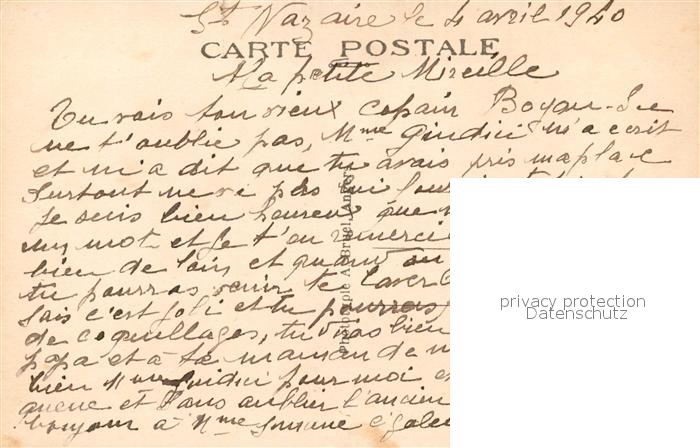 St Nazaire le 4 avril 1940
CARTE POSTALE
A la petite Mireille
Tu vois ton vieux copain Boyau. Je
ne t'oublie pas, Mme Giudici m'a ecrit
et m'a dit que tu avais pris ma place
Surtout ne
Je suis bien heureux que
mot et je t'en remerci
bien de loin et quand on
tu pourras venir te laver
sais c'est joli et tu pourras
de coquillages, tu diras bien
papa et à ta maman de
bien Mme Giudici pour moi et
queue et sans oublier l'ancien
bonjour à Mme Simone egalem
Phototypie A. Bruel Angers
privacy protection
Datenschutz